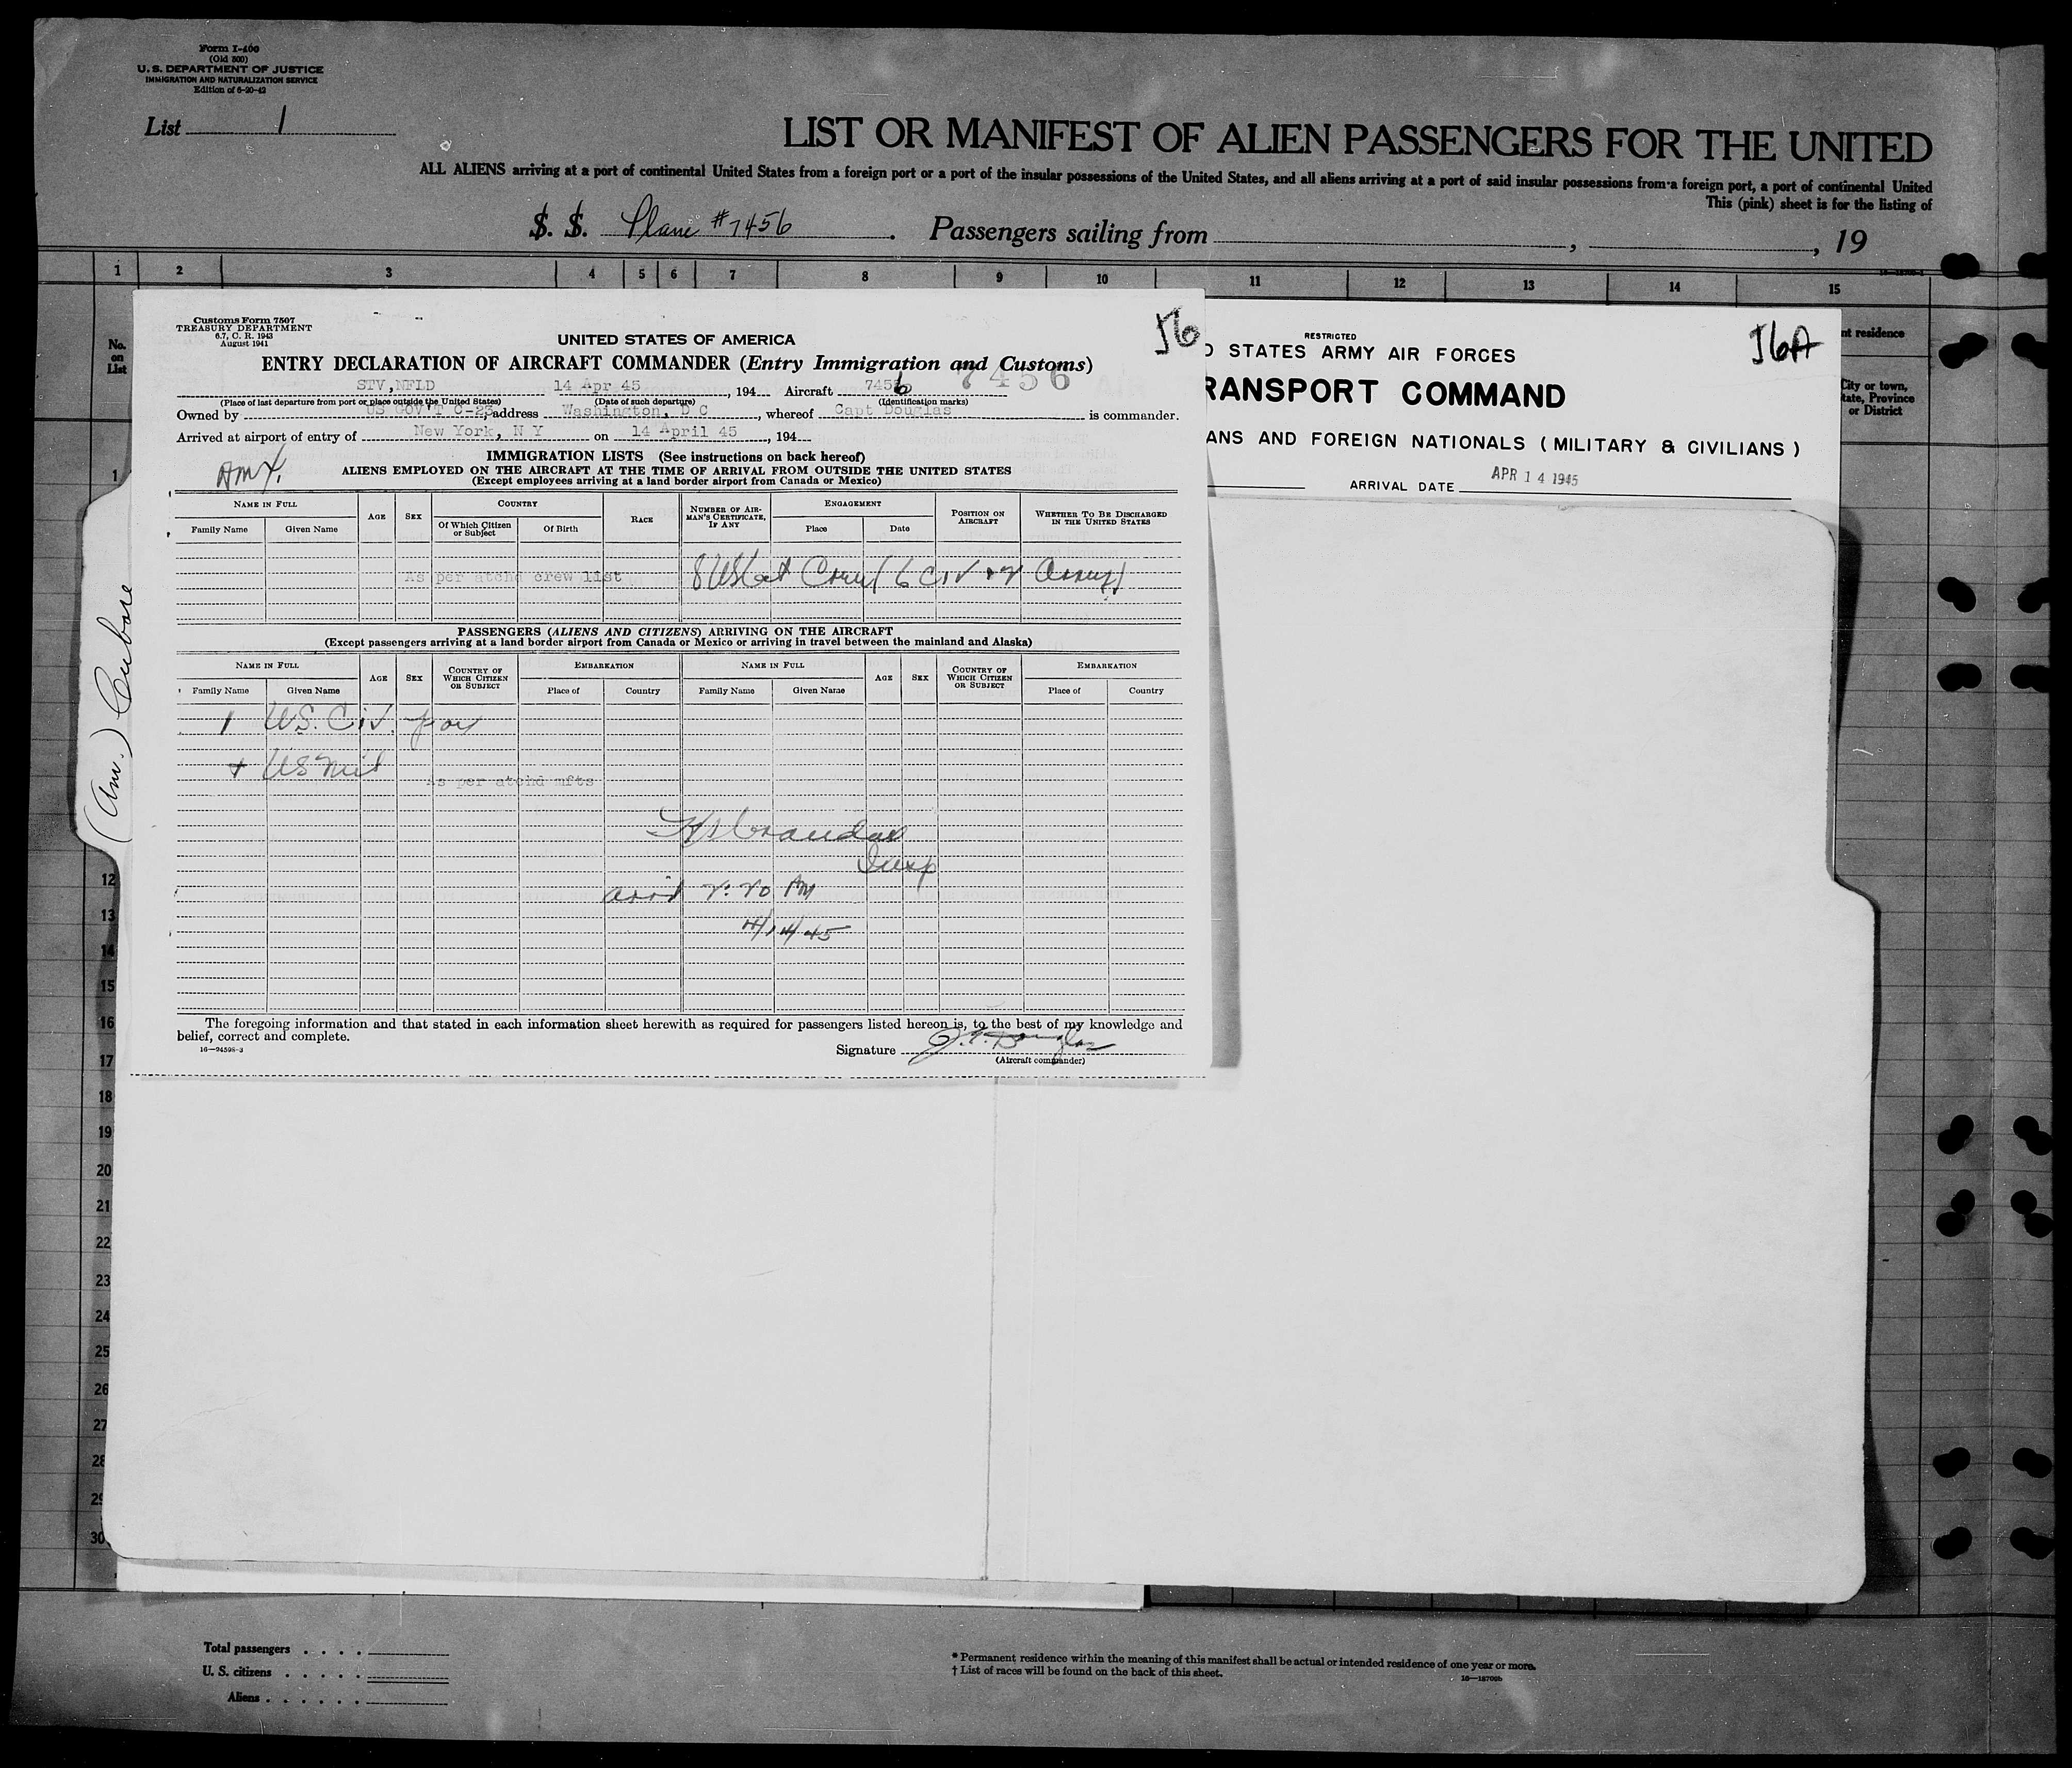 Form I-400
(Old 500)
U. S. DEPARTMENT OF JUSTICE
IMMIGRATION AND NATURALIZATION SERVICE
Edition of 6-20-42
List 1
LIST OR MANIFEST OF ALIEN PASSENGERS FOR THE UNITED
ALL ALIENS arriving at a port of continental United States from a foreign port or a port of the insular possessions of the United States, and all aliens arriving at a port of said insular possessions from a foreign port, a port of continental United
This (pink) sheet is for the listing of
S. S. Plane #7456. Passengers sailing from , , 19
1 2 3 4 5 6 7 8 9 10 11 12 13 14 15
No. on List
nt residence
City or town, tate, Province or District
1
Customs Form 7507
TREASURY DEPARTMENT
6.7, C. R. 1943
August 1941
56
UNITED STATES OF AMERICA
ENTRY DECLARATION OF AIRCRAFT COMMANDER (Entry Immigration and Customs)
STV,NFLD 14 Apr 45, 194 Aircraft 7456 7456
(Place of last departure from port or place outside the United States) (Date of such departure) (Identification marks)
Owned by US GOV'T, address Washington, D C, whereof Capt Douglas is commander.
Arrived at airport of entry of New York, N Y on 14 April 45, 194
IMMIGRATION LISTS (See instructions on back hereof)
ALIENS EMPLOYED ON THE AIRCRAFT AT THE TIME OF ARRIVAL FROM OUTSIDE THE UNITED STATES
(Except employees arriving at a land border airport from Canada or Mexico)
NAME IN FULL AGE SEX COUNTRY RACE NUMBER OF AIRMAN'S CERTIFICATE, IF ANY ENGAGEMENT POSITION ON AIRCRAFT WHETHER TO BE DISCHARGED IN THE UNITED STATES
Family Name Given Name Of Which Citizen or Subject Of Birth Place Date
As per atchd crew list 8 US Cit Crew (6 Civ + 2 Army)
PASSENGERS (ALIENS AND CITIZENS) ARRIVING ON THE AIRCRAFT
(Except passengers arriving at a land border airport from Canada or Mexico or arriving in travel between the mainland and Alaska)
NAME IN FULL AGE SEX COUNTRY OF WHICH CITIZEN OR SUBJECT EMBARKATION NAME IN FULL AGE SEX COUNTRY OF WHICH CITIZEN OR SUBJECT EMBARKATION
Family Name Given Name Place of Country Family Name Given Name Place of Country
1 U.S. Civ.
US Mil
As per atchd mfts
Insp
Arr'd 2:20 AM
4/14/45
The foregoing information and that stated in each information sheet herewith as required for passengers listed hereon is, to the best of my knowledge and
belief, correct and complete.
16—24598-3
Signature Douglas
(Aircraft commander)
RESTRICTED
56A
D STATES ARMY AIR FORCES
RANSPORT COMMAND
ANS AND FOREIGN NATIONALS (MILITARY & CIVILIANS)
ARRIVAL DATE APR 14 1945
12
13
14
15
16
17
18
19
20
21
22
23
24
25
26
27
28
29
30
Total passengers
U. S. citizens
Aliens
* Permanent residence within the meaning of this manifest shall be actual or intended residence of one year or more.
† List of races will be found on the back of this sheet.